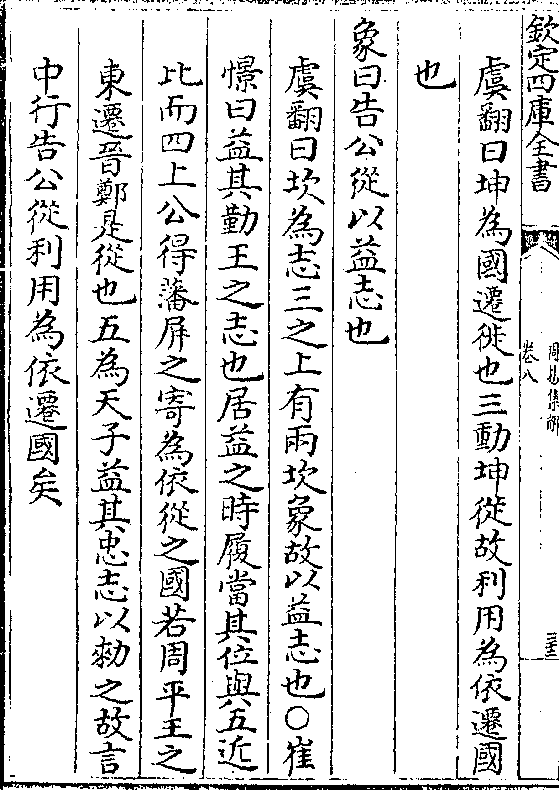 欽定四庫全書
周易集解
卷八
三十三
虞翻曰坤為國遷徙也三動坤徙故利用為依遷國
也
象曰告公從以益志也
虞翻曰坎為志三之上有兩坎象故以益志也○崔
憬曰益其勤王之志也居益之時履當其位與五近
比而四上公得藩屏之寄為依從之國若周平王之
東遷晉鄭是從也五為天子益其忠志以勑之故言
中行告公從利用為依遷國矣